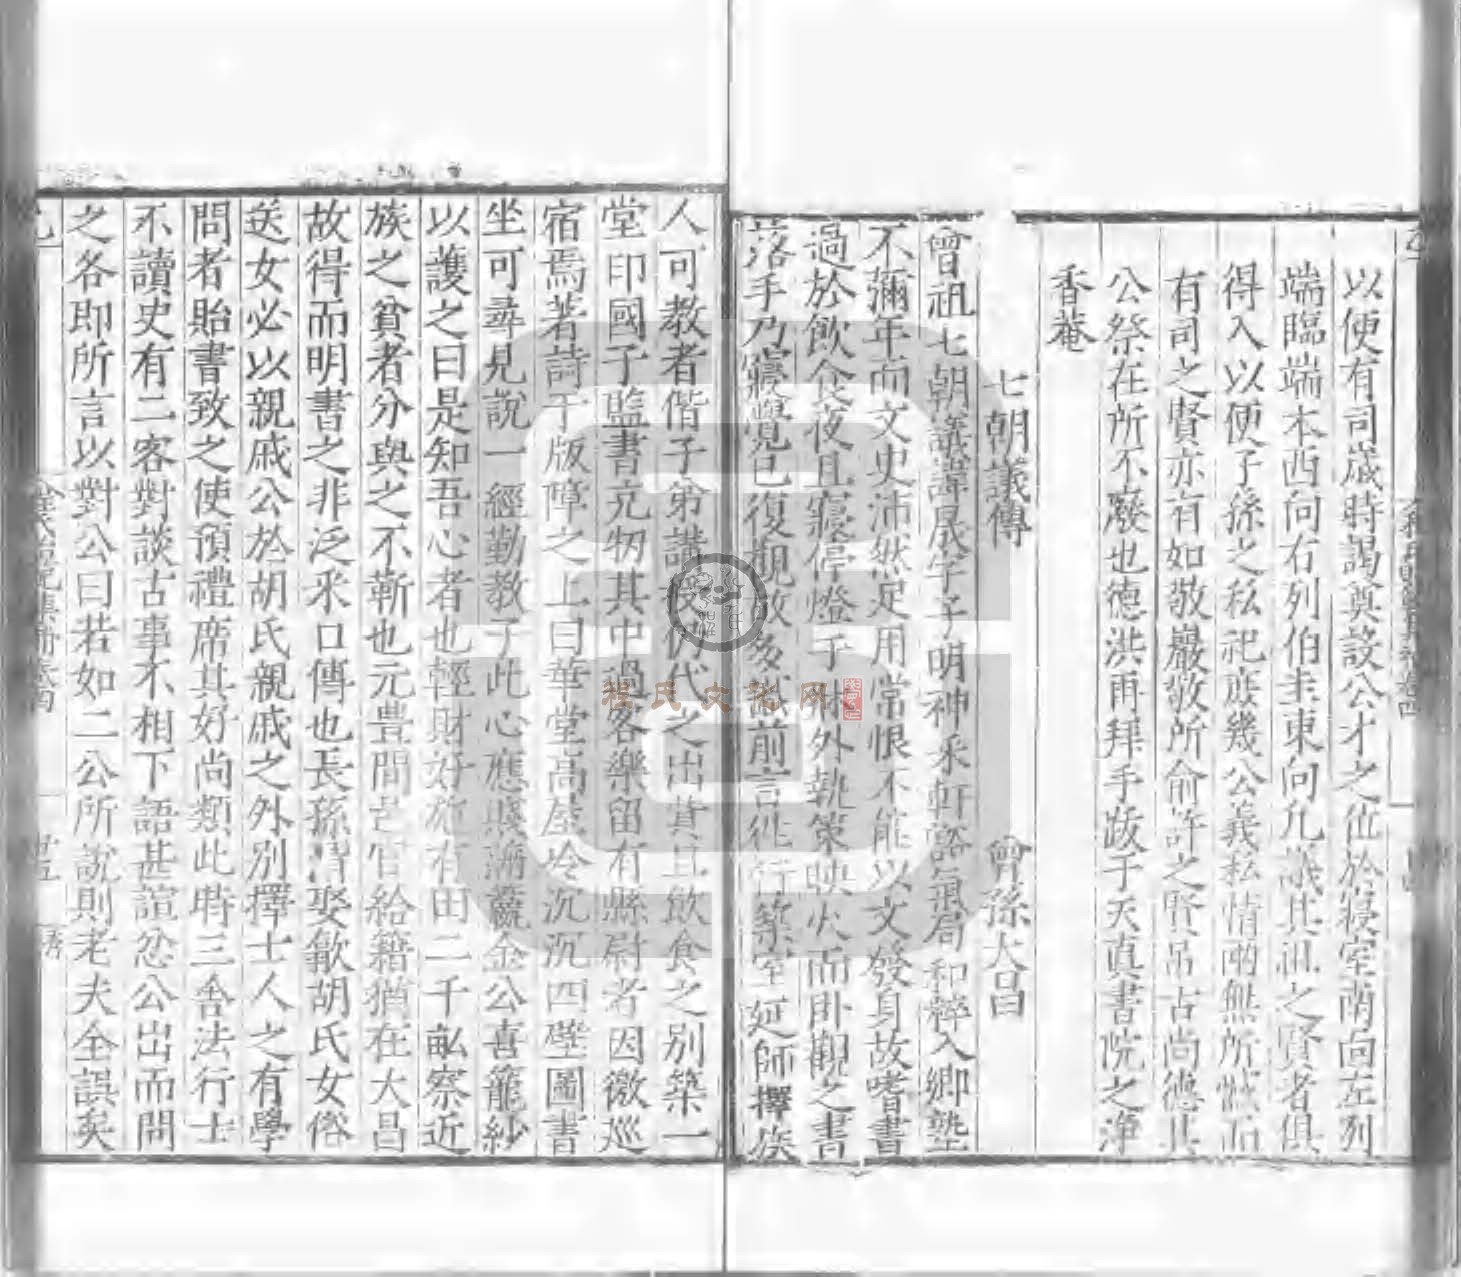 以便有司歲時謁奠設公才之位於寢室南向左列
端臨端本西向右列伯圭東向凡議其祖之賢者俱
得入以便子孫之私祀族幾公義私情兩無所憾而
有司之賢亦有如敬巖敬所俞許之賢吊占尚德其
公祭在所不廢也德洪再拜手跋于天真書院之淨
香菴
七朝議傳
曾孫大昌
曾祖七朝議諱晟字子明神采軒豁氣局和粹入鄉塾
不彌年而文史沛然足用常恨不能以文發身故嗜書
過於飲食夜且寢停燈于帳外執策映火而卧觀之書
落手乃寢覺已復觀故多識前言往行築室延師擇族
人可教者偕子弟講授伏代之出其且飲食之別築一
堂印國子監書充牣其中過客樂留有縣尉者因徼巡
宿焉著詩于版障之上曰華堂高屋冷沉沉四壁圖書
坐可尋見說一經勤教子此心應賤滿籯金公喜籠紗
以護之曰是知吾心者也輕財好施有田二千畝察近
族之貧者分與之不靳也元豊間官給籍猶在大昌
故得而明書之非泛采口傳也長孫娶歙胡氏女俗
送女必以親戚公於胡氏親戚之外別擇士人之有學
問者貽書致之使預禮席其好尚類此時三舍法行士
不讀史有二客對談古事不相下語甚諠忿公出而問
之各即所言以對公曰若如二公所說則老夫全誤矣
程氏文化网